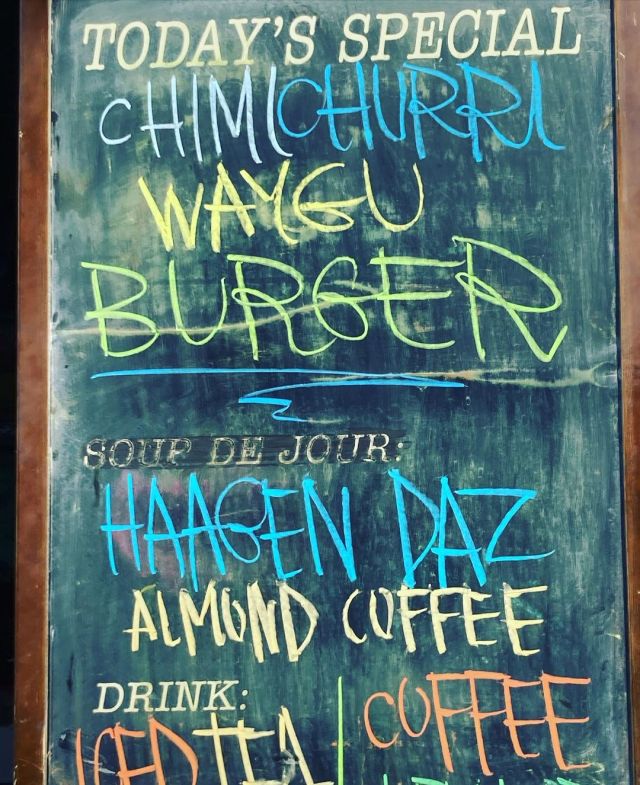 TODAY'S SPECIAL
CHIMICHURRI
WAYGU
BURGER
SOUP DE JOUR:
HAAGEN DAZ
ALMOND COFFEE
DRINK:
ICED TEA
COFFEE